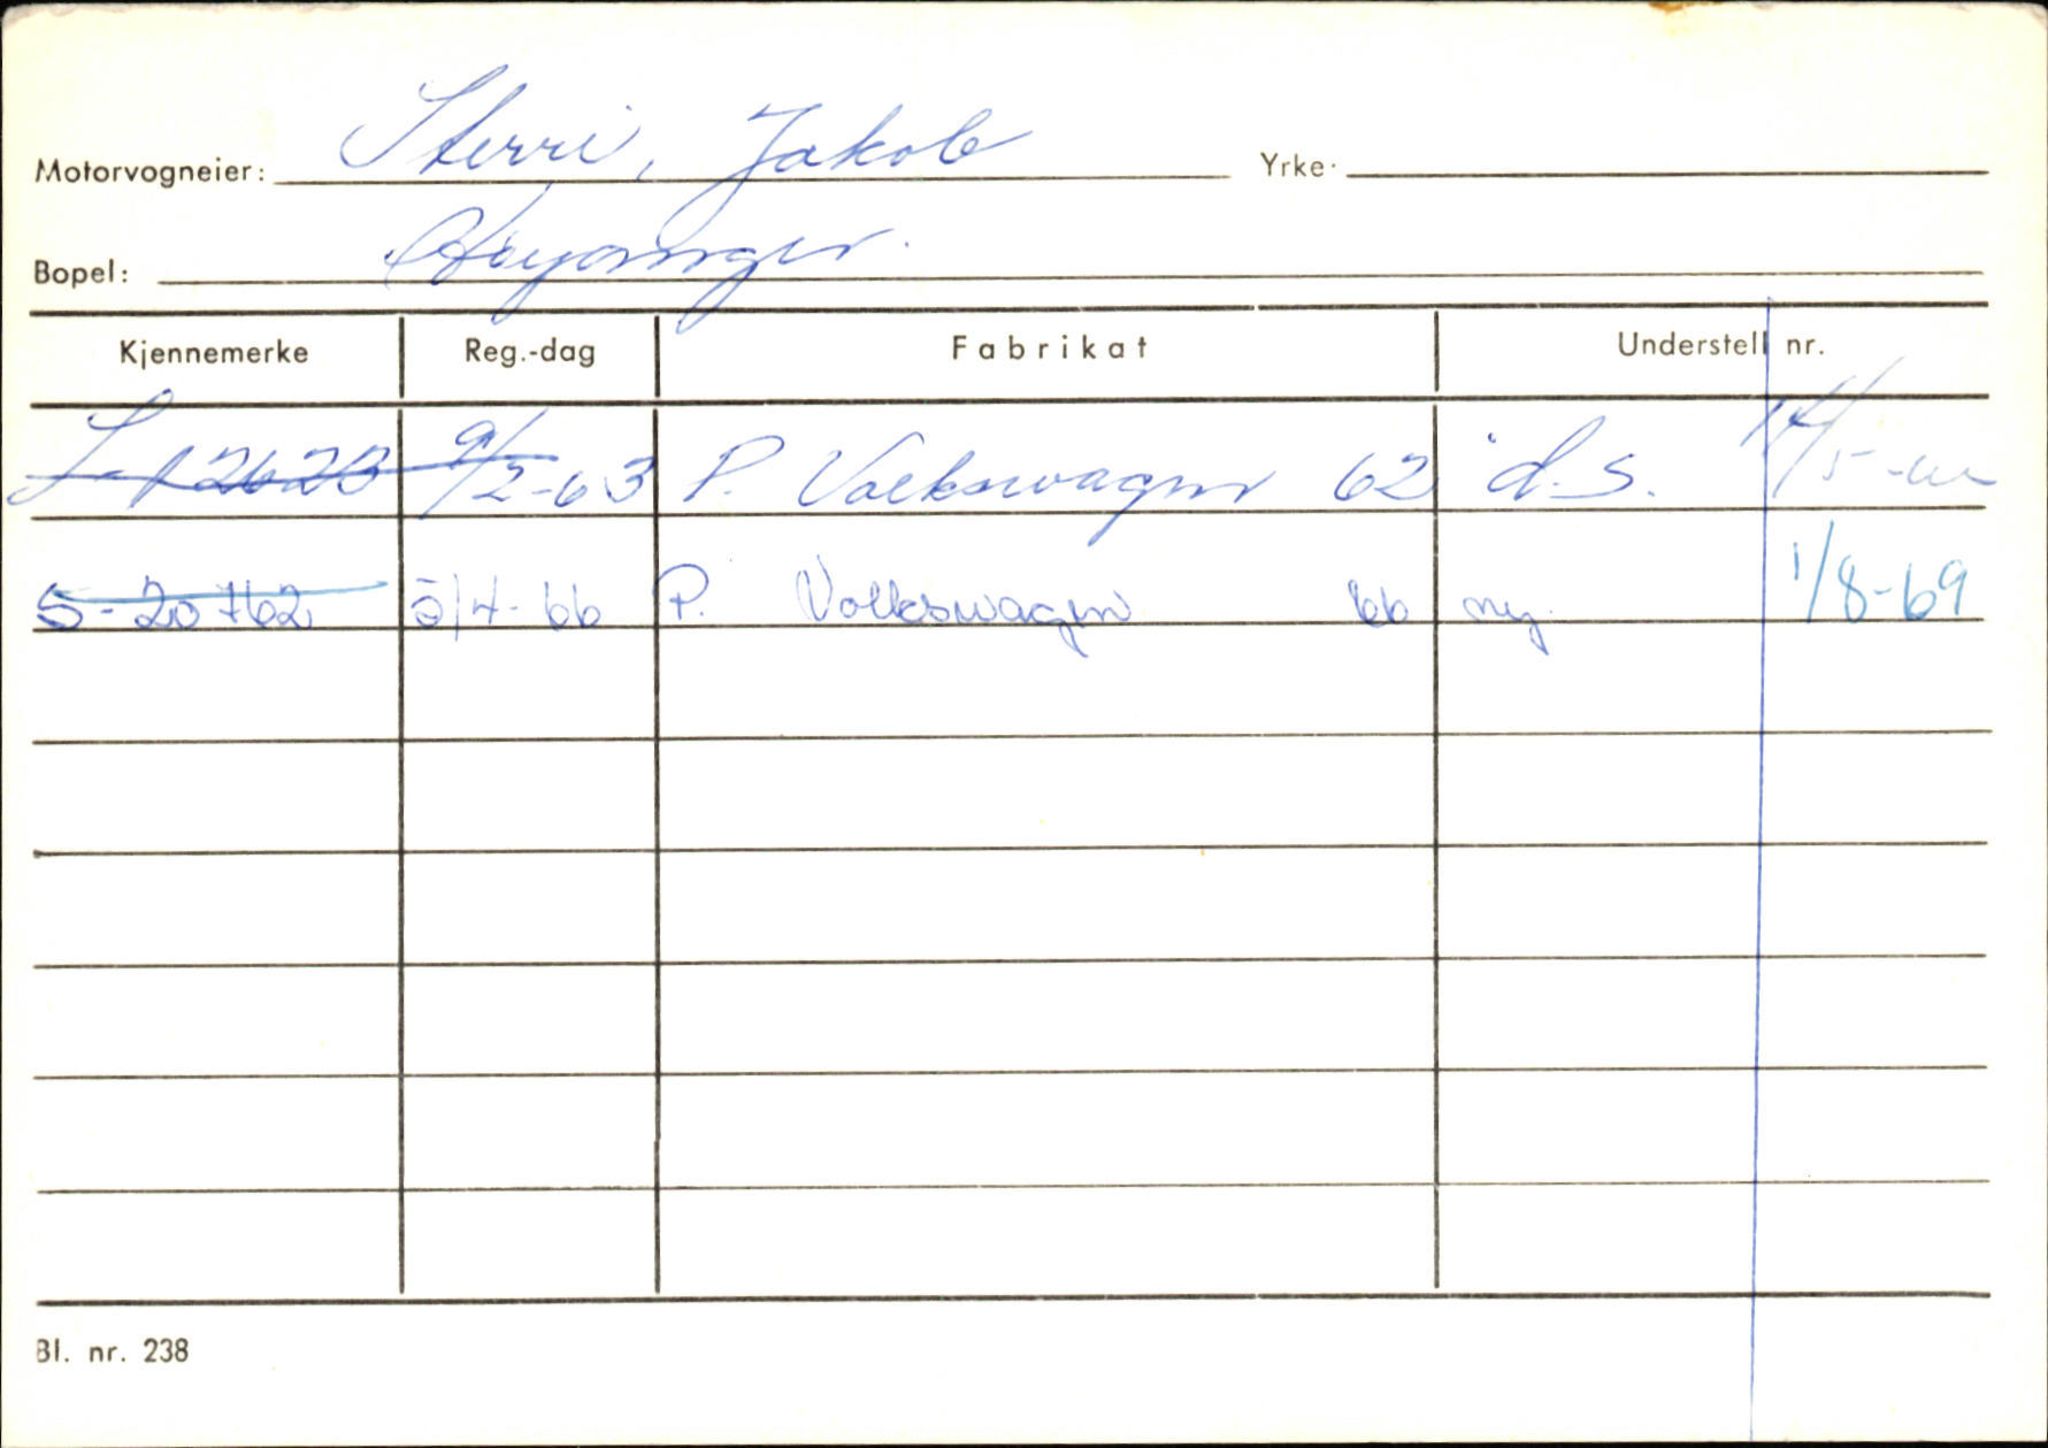 Motorvogneier: Sterri, Jakob Yrke:
Bopel: Høyanger.
Kjennemerke Reg.-dag Fabrikat Understell nr.
9/2-63 P. Volkswagen 62 d.s.
S-20762 5/4-66 P. Volkswagen 66 ny. 1/8-69
Bl. nr. 238